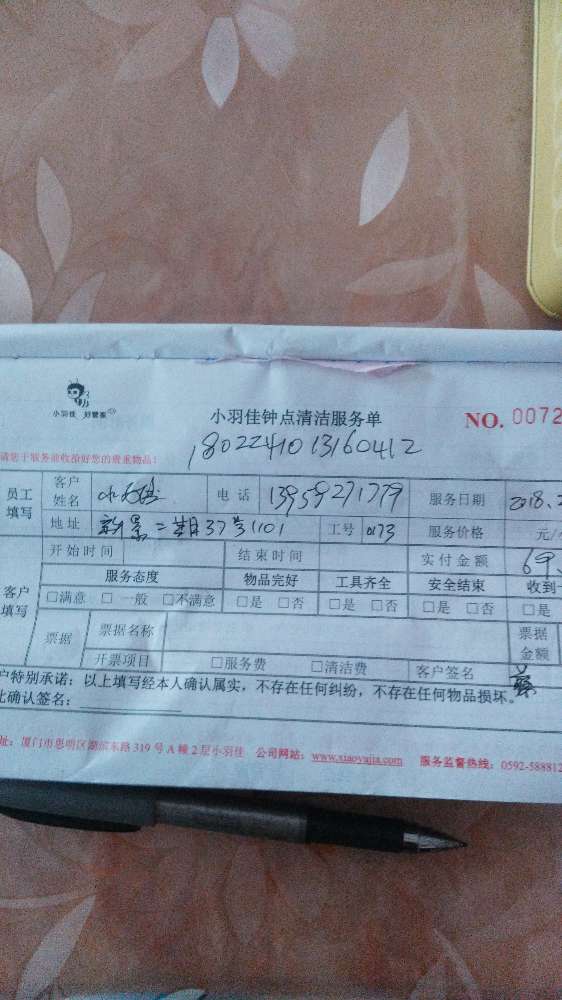 小羽佳 好管家
小羽佳钟点清洁服务单 NO. 0072
1802241013160412
请您于服务前收拾好您的贵重物品!
员工填写 客户姓名 电话 13959271779 服务日期 2018.2
地址 新景二期37号1101 工号 0173 服务价格 元/
开始时间 结束时间 实付金额 69.
客户填写 服务态度 物品完好 工具齐全 安全结束 收到
□满意 □一般 □不满意 □是 □否 □是 □否 □是 □否 □是
票据 票据名称 票据金额
开票项目 □服务费 □清洁费 客户签名
户特别承诺：以上填写经本人确认属实，不存在任何纠纷，不存在任何物品损坏。
比确认签名：
址：厦门市思明区湖滨东路319号A幢2层小羽佳 公司网站：www.xiaoyujia.com 服务监督热线：0592-588812